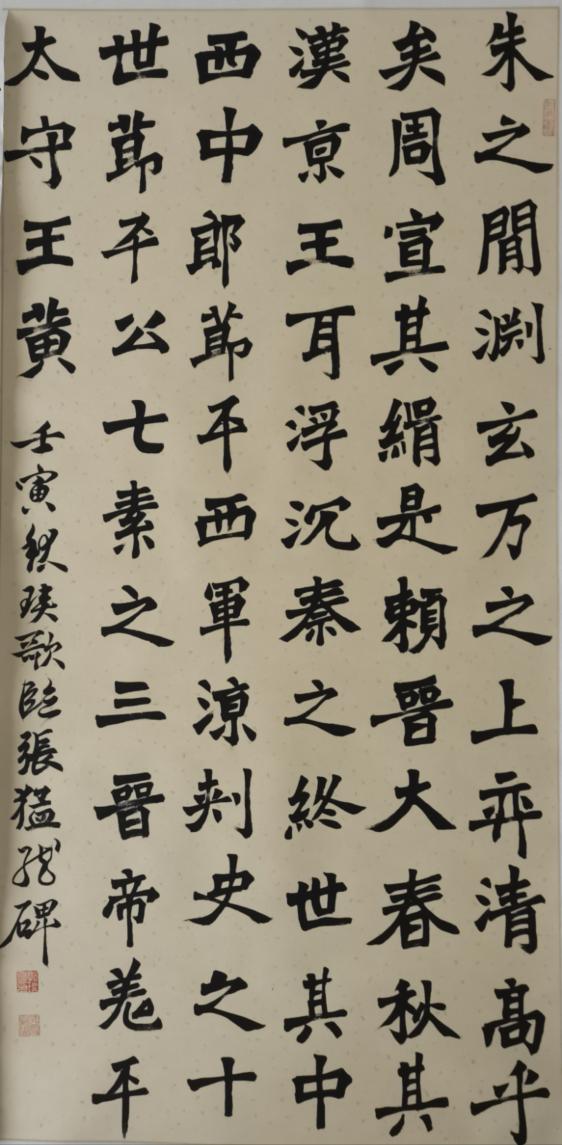 朱之間淵玄万之上弈清高乎
矣周宣其絹是賴晉大春秋其
漢亰王耳浮沉秦之終世其中
西中郎莭平西軍涼刾史之十
世莭平公七素之三晉帝羌平
太守王黄
壬寅秋歌臨張猛龍碑